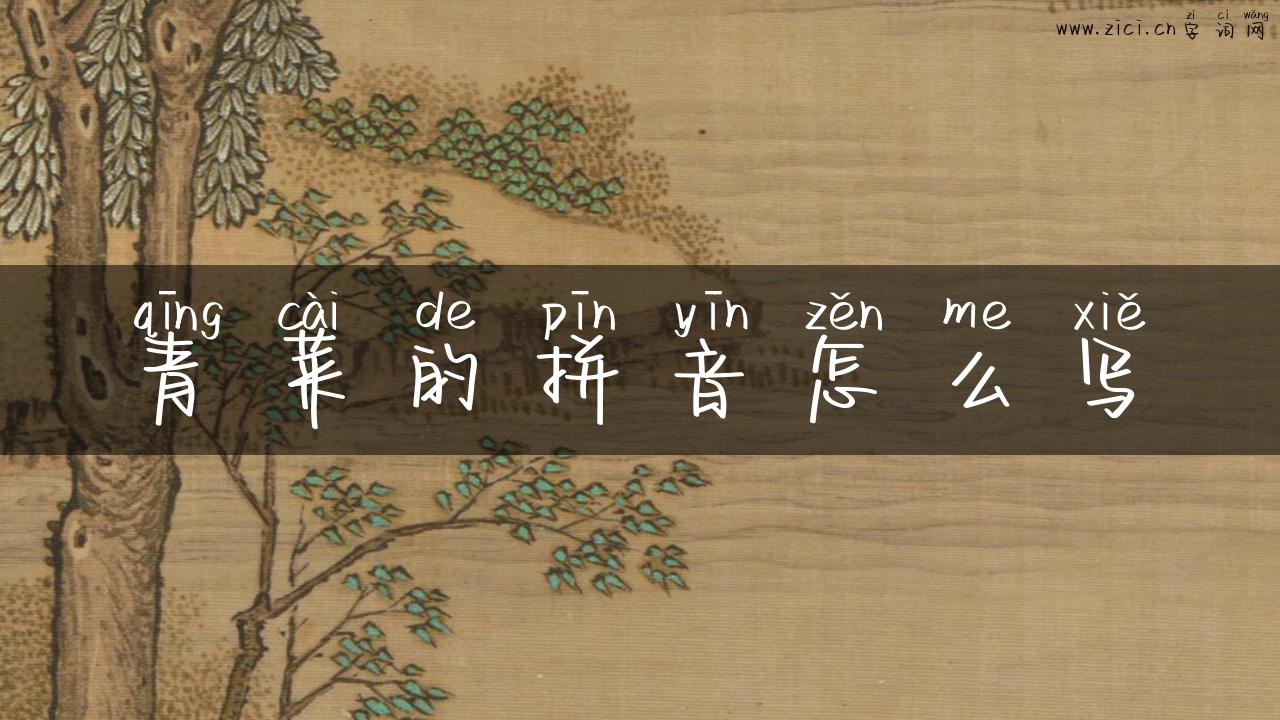 zì cí wǎng
www.zici.cn 字 词 网
qīng cài de pīn yīn zěn me xiě
青 菜 的 拼 音 怎 么 写